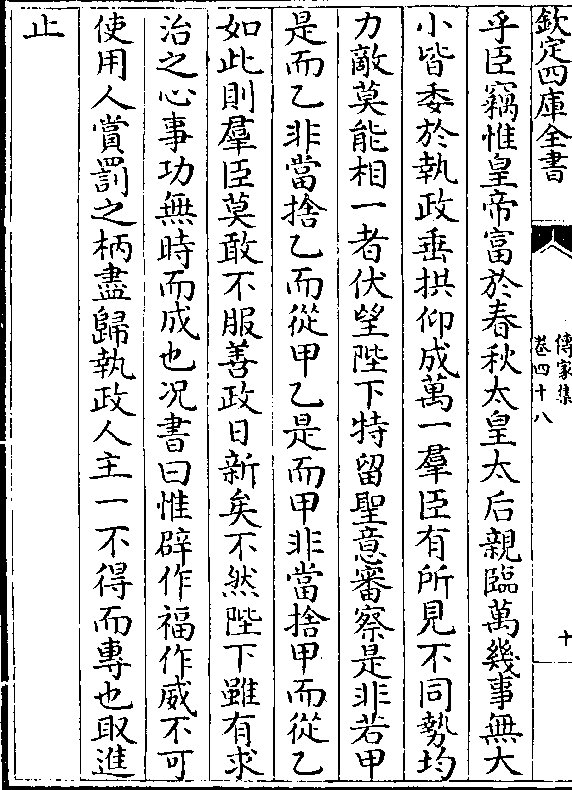 欽定四庫全書
傳家集
卷四十八
十
乎臣竊惟皇帝富於春秋太皇太后親臨萬幾事無大
小皆委於執政垂拱仰成萬一羣臣有所見不同勢均
力敵莫能相一者伏望陛下特留聖意審察是非若甲
是而乙非當捨乙而從甲乙是而甲非當捨甲而從乙
如此則羣臣莫敢不服善政日新矣不然陛下雖有求
治之心事功無時而成也况書曰惟辟作福作威不可
使用人賞罰之柄盡歸執政人主一不得而專也取進
止